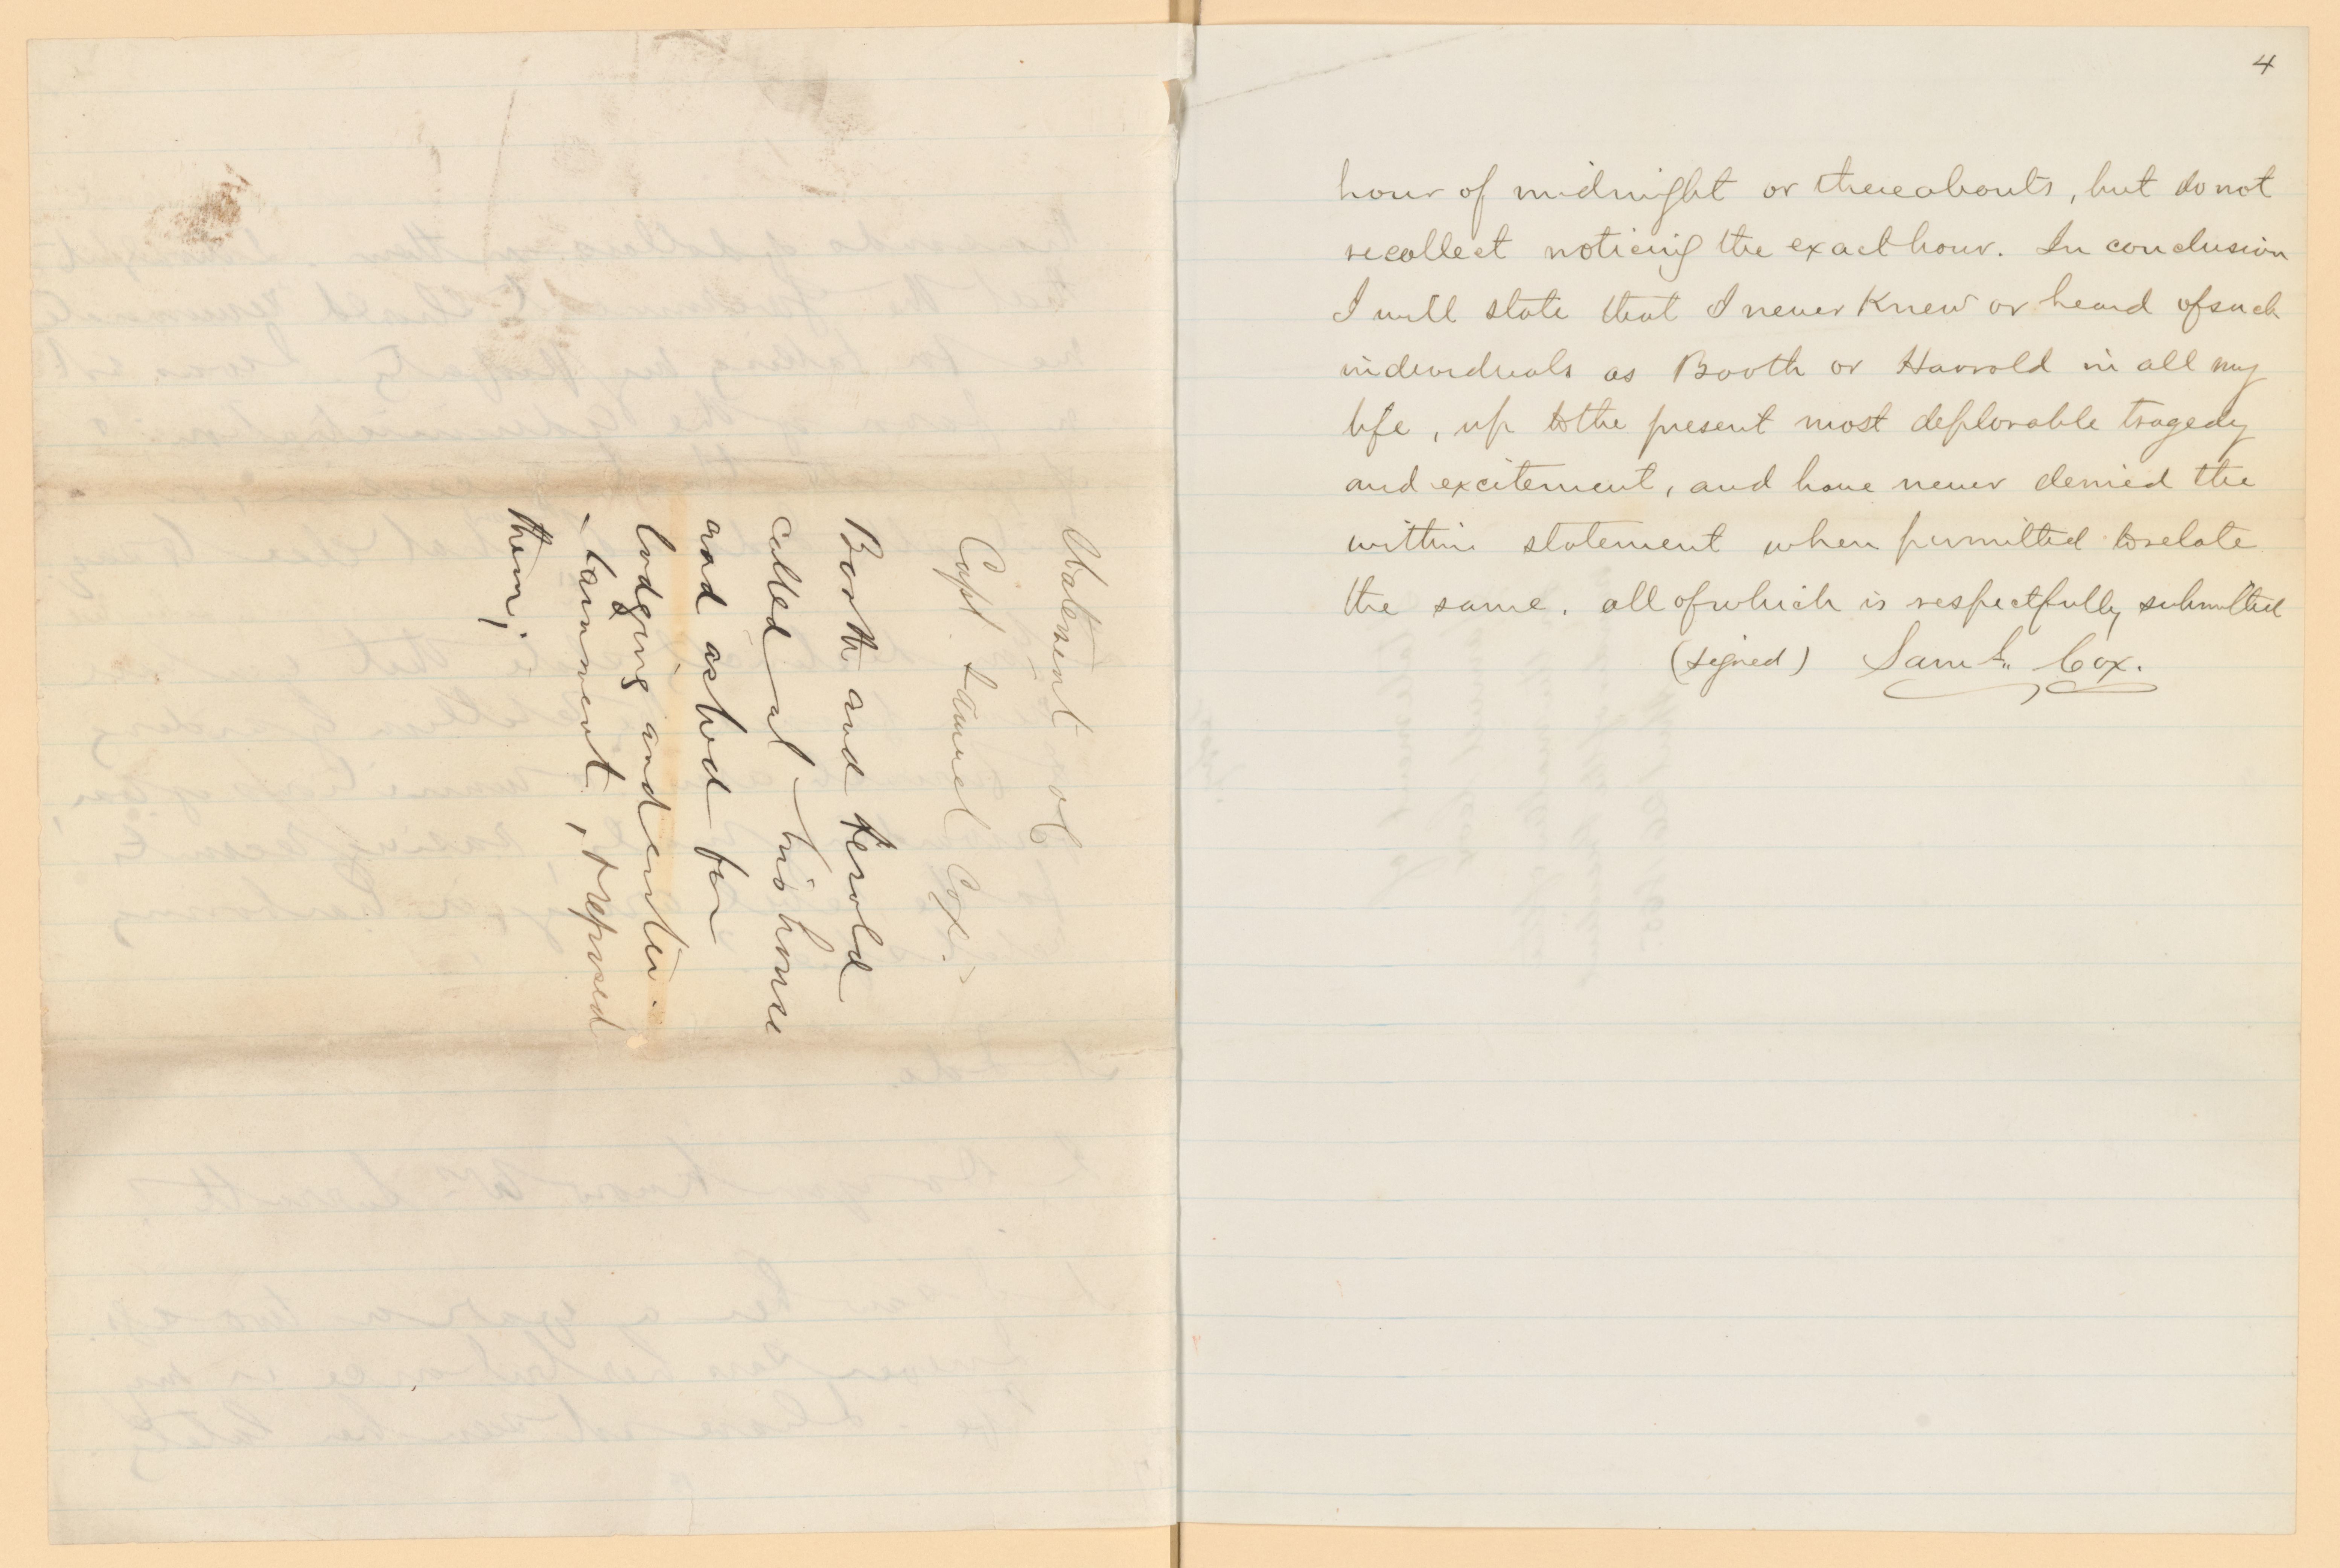 Statement of
Capt. Samuel Cox.
Booth and Herold
called at his house
and asked for
lodging and enter-
-tainment, & refused
them;
4
hour of midnight or thereabouts, but do not
recollect noticing the exact hour. In conclusion
I will state that I never knew or heard of such
individuals as Booth or Harrold in all my
life, up to the present most deplorable tragedy
and excitement, and have never denied the
within statement when permitted to relate
the same. all of which is respectfully submitted
(signed) Saml. Cox.